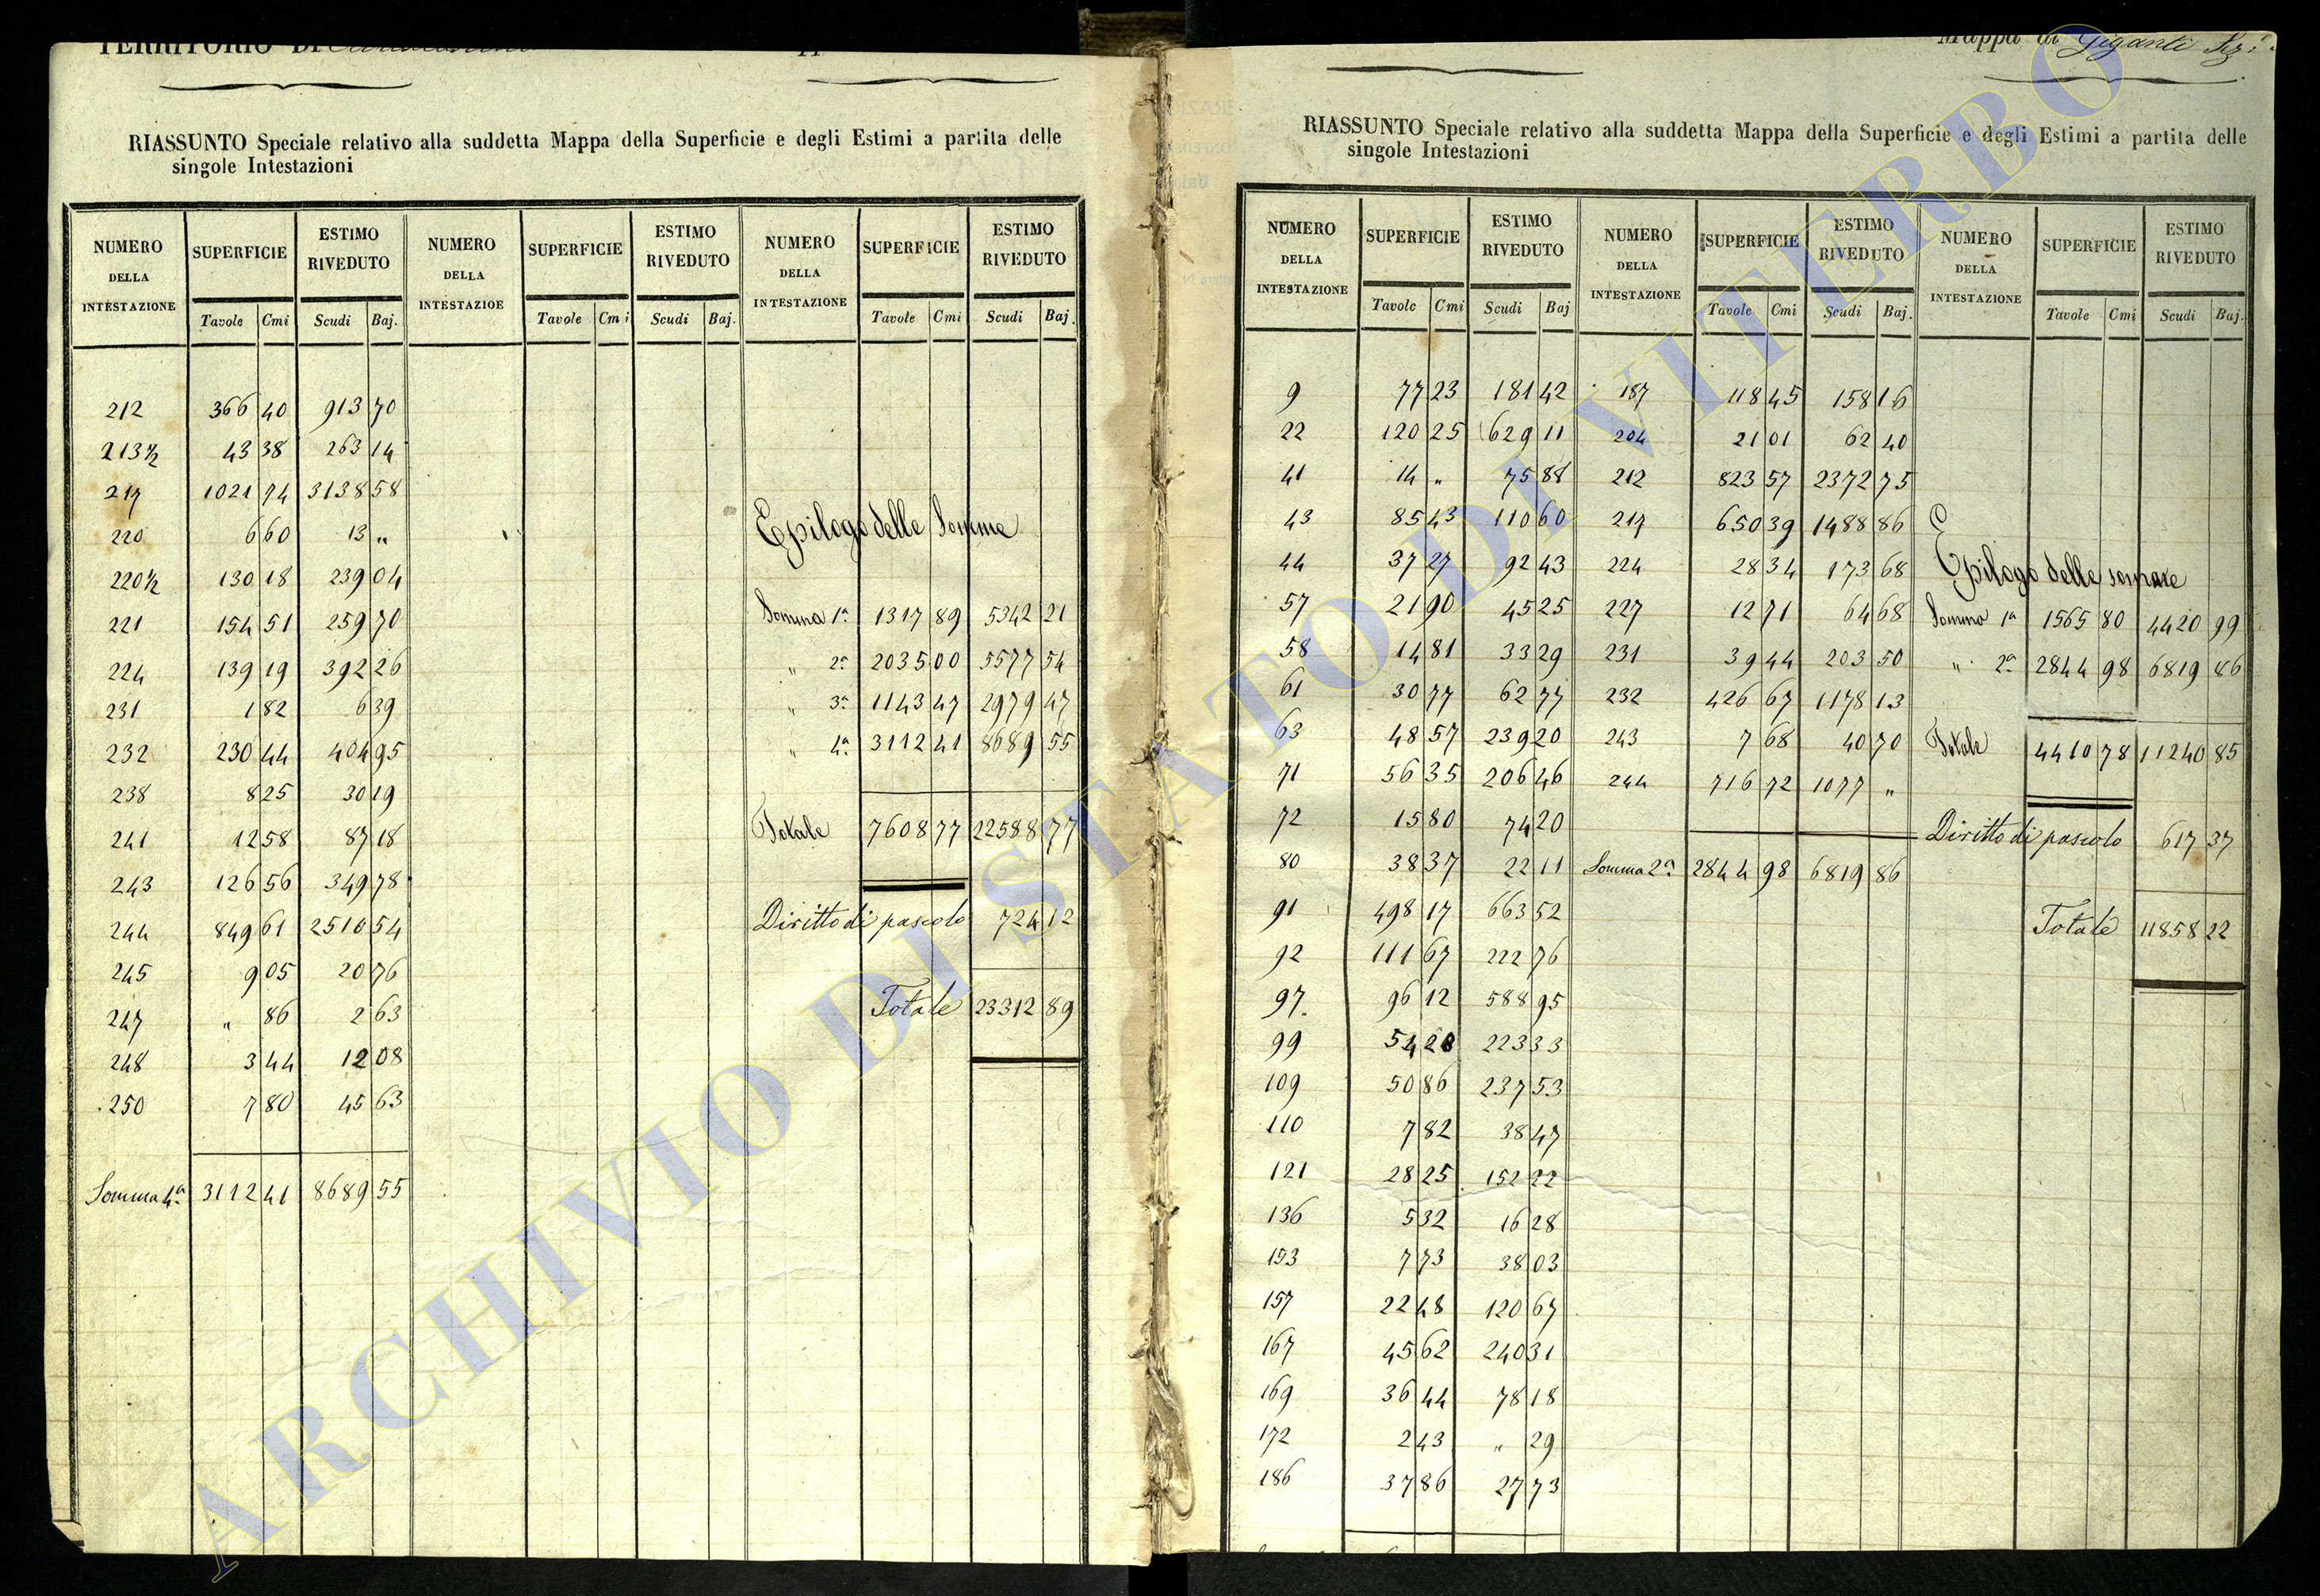 TERRITORIO DI
RIASSUNTO Speciale relativo alla suddetta Mappa della Superficie e degli Estimi a partita delle
singole Intestazioni
NUMERO DELLA INTESTAZIONE SUPERFICIE ESTIMO RIVEDUTO NUMERO DELLA INTESTAZIOE SUPERFICIE ESTIMO RIVEDUTO NUMERO DELLA INTESTAZIONE SUPERFICIE ESTIMO RIVEDUTO
Tavole Cmi Scudi Baj. Tavole Cmi Scudi Baj. Tavole Cmi Scudi Baj.
212 366 40 913 70
213½ 43 38 263 14
217 1021 74 3138 58
220 6 60 13 "
220½ 130 18 239 04
221 154 51 259 70
224 139 19 392 26
231 1 82 6 39
232 230 44 404 95
238 8 25 30 19
241 12 58 87 18
243 126 56 349 78
244 849 61 2510 54
245 9 05 20 76
247 " 86 2 63
248 3 44 12 08
250 7 80 45 63
Somma 4ª 3112 41 8689 55
Epilogo delle Somme
Somma 1ª 1317 89 5342 21
" 2ª 2035 00 5577 54
" 3ª 1143 47 2979 47
" 4ª 3112 41 8689 55
Totale 7608 77 22588 77
Diritto di pascolo 724 12
Totale 23312 89
Mappa di Giganti Sez.
RIASSUNTO Speciale relativo alla suddetta Mappa della Superficie e degli Estimi a partita delle
singole Intestazioni
NUMERO DELLA INTESTAZIONE SUPERFICIE ESTIMO RIVEDUTO NUMERO DELLA INTESTAZIONE SUPERFICIE ESTIMO RIVEDUTO NUMERO DELLA INTESTAZIONE SUPERFICIE ESTIMO RIVEDUTO
Tavole Cmi Scudi Baj Tavole Cmi Scudi Baj. Tavole Cmi Scudi Baj.
9 77 23 181 42
22 120 25 629 11
41 14 " 75 88
43 85 43 110 60
44 37 27 92 43
57 21 90 45 25
58 14 81 33 29
61 30 77 62 77
63 48 57 239 20
71 56 35 206 46
72 15 80 74 20
80 38 37 22 11
91 498 17 663 52
92 111 67 222 76
97 96 12 588 95
99 54 28 223 33
109 50 86 237 53
110 7 82 38 47
121 28 25 152 22
136 5 32 16 28
153 7 73 38 03
157 22 48 120 67
167 45 62 240 31
169 36 44 78 18
172 2 43 " 29
186 37 86 27 73
187 118 45 158 16
204 21 01 62 40
212 823 57 2372 75
217 650 39 1488 86
224 28 34 173 68
227 12 71 64 68
231 39 44 203 50
232 426 67 1178 13
243 7 68 40 70
244 716 72 1077 "
Somma 2ª 2844 98 6819 86
Epilogo delle somme
Somma 1ª 1565 80 4420 99
" 2ª 2844 98 6819 86
Totale 4410 78 11240 85
Diritto di pascolo 617 37
Totale 11858 22
ARCHIVIO DI STATO DI VITERBO